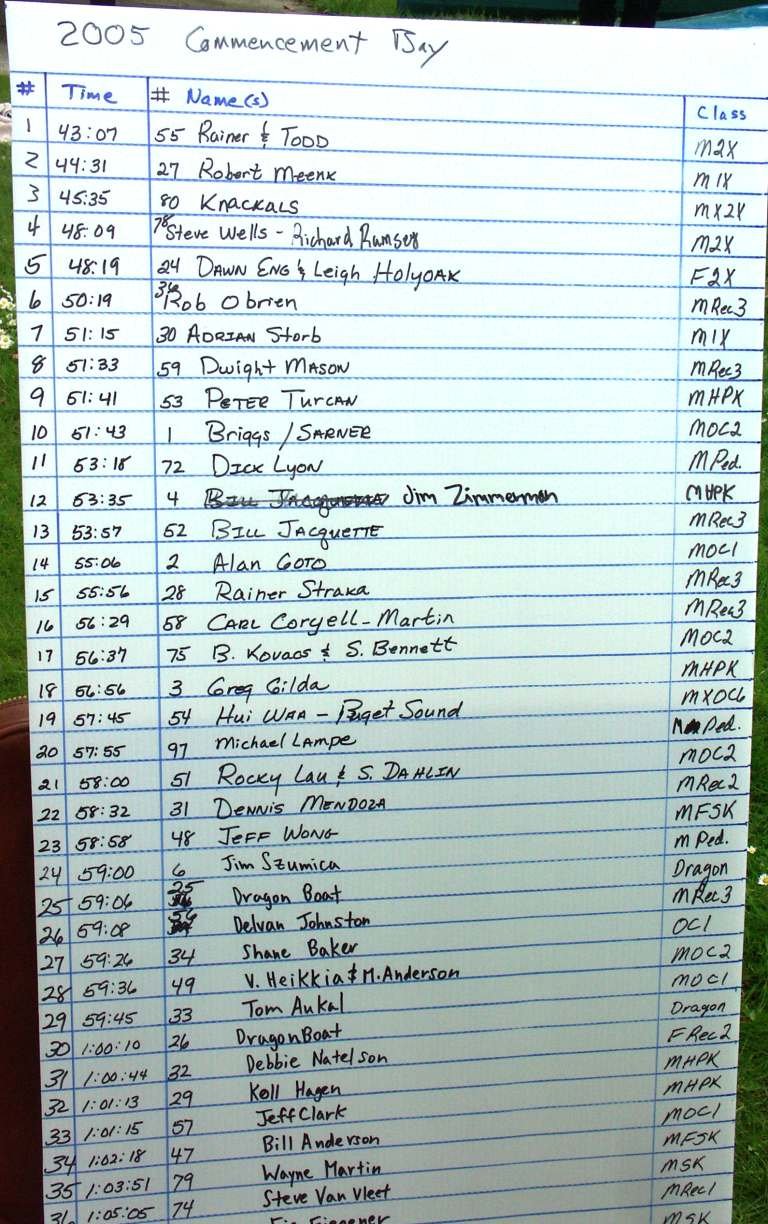 2005 Commencement Bay
# Time # Name(s) Class
1 43:07 55 Rainer & TODD M2X
2 44:31 27 Robert Meenk M1X
3 45:35 80 KNACKALS MX2X
4 48:09 78 Steve Wells - Richard Ramsey M2X
5 48:19 24 DAWN ENG & Leigh HOLYOAK F2X
6 50:19 36 Rob Obrien MRec3
7 51:15 30 ADRIAN Storb M1X
8 51:33 59 Dwight MASON MRec3
9 51:41 53 PETER TURCAN MHPK
10 51:43 1 Briggs / SARNER MOC2
11 53:18 72 DICK LYON MPed.
12 53:35 4 BILL JACQUETTE Jim Zimmerman MHPK
13 53:57 52 BILL JACQUETTE MRec3
14 55:06 2 Alan GOTO MOC1
15 55:56 28 Rainer Straka MRec3
16 56:29 58 CARL Coryell-Martin MRec3
17 56:37 75 B. Kovacs & S. Bennett MOC2
18 56:56 3 Greg Gilda MHPK
19 57:45 54 Hui WAA - Puget Sound MXOC6
20 57:55 97 Michael LAmpe M Ped.
21 58:00 51 Rocky Lau & S. DAHLIN MOC2
22 58:32 31 DENNIS MENDOZA MRec2
23 58:58 48 JEFF WONG MFSK
24 59:00 6 Jim Szumica M Ped.
25 59:06 25 Dragon Boat Dragon
26 59:08 56 Delvan Johnston MRec3
27 59:26 34 Shane Baker OC1
28 59:36 49 V. Heikkia & M. Anderson MOC2
29 59:45 33 Tom Aukal MOC1
30 1:00:10 26 DragonBoat Dragon
31 1:00:44 32 Debbie Natelson FRec2
32 1:01:13 29 Koll Hagen MHPK
33 1:01:15 57 Jeff Clark MHPK
34 1:02:18 47 Bill Anderson MOC1
35 1:03:51 79 Wayne Martin MFSK
36 1:05:05 74 Steve Van Vleet MSK
MRec1
MSK